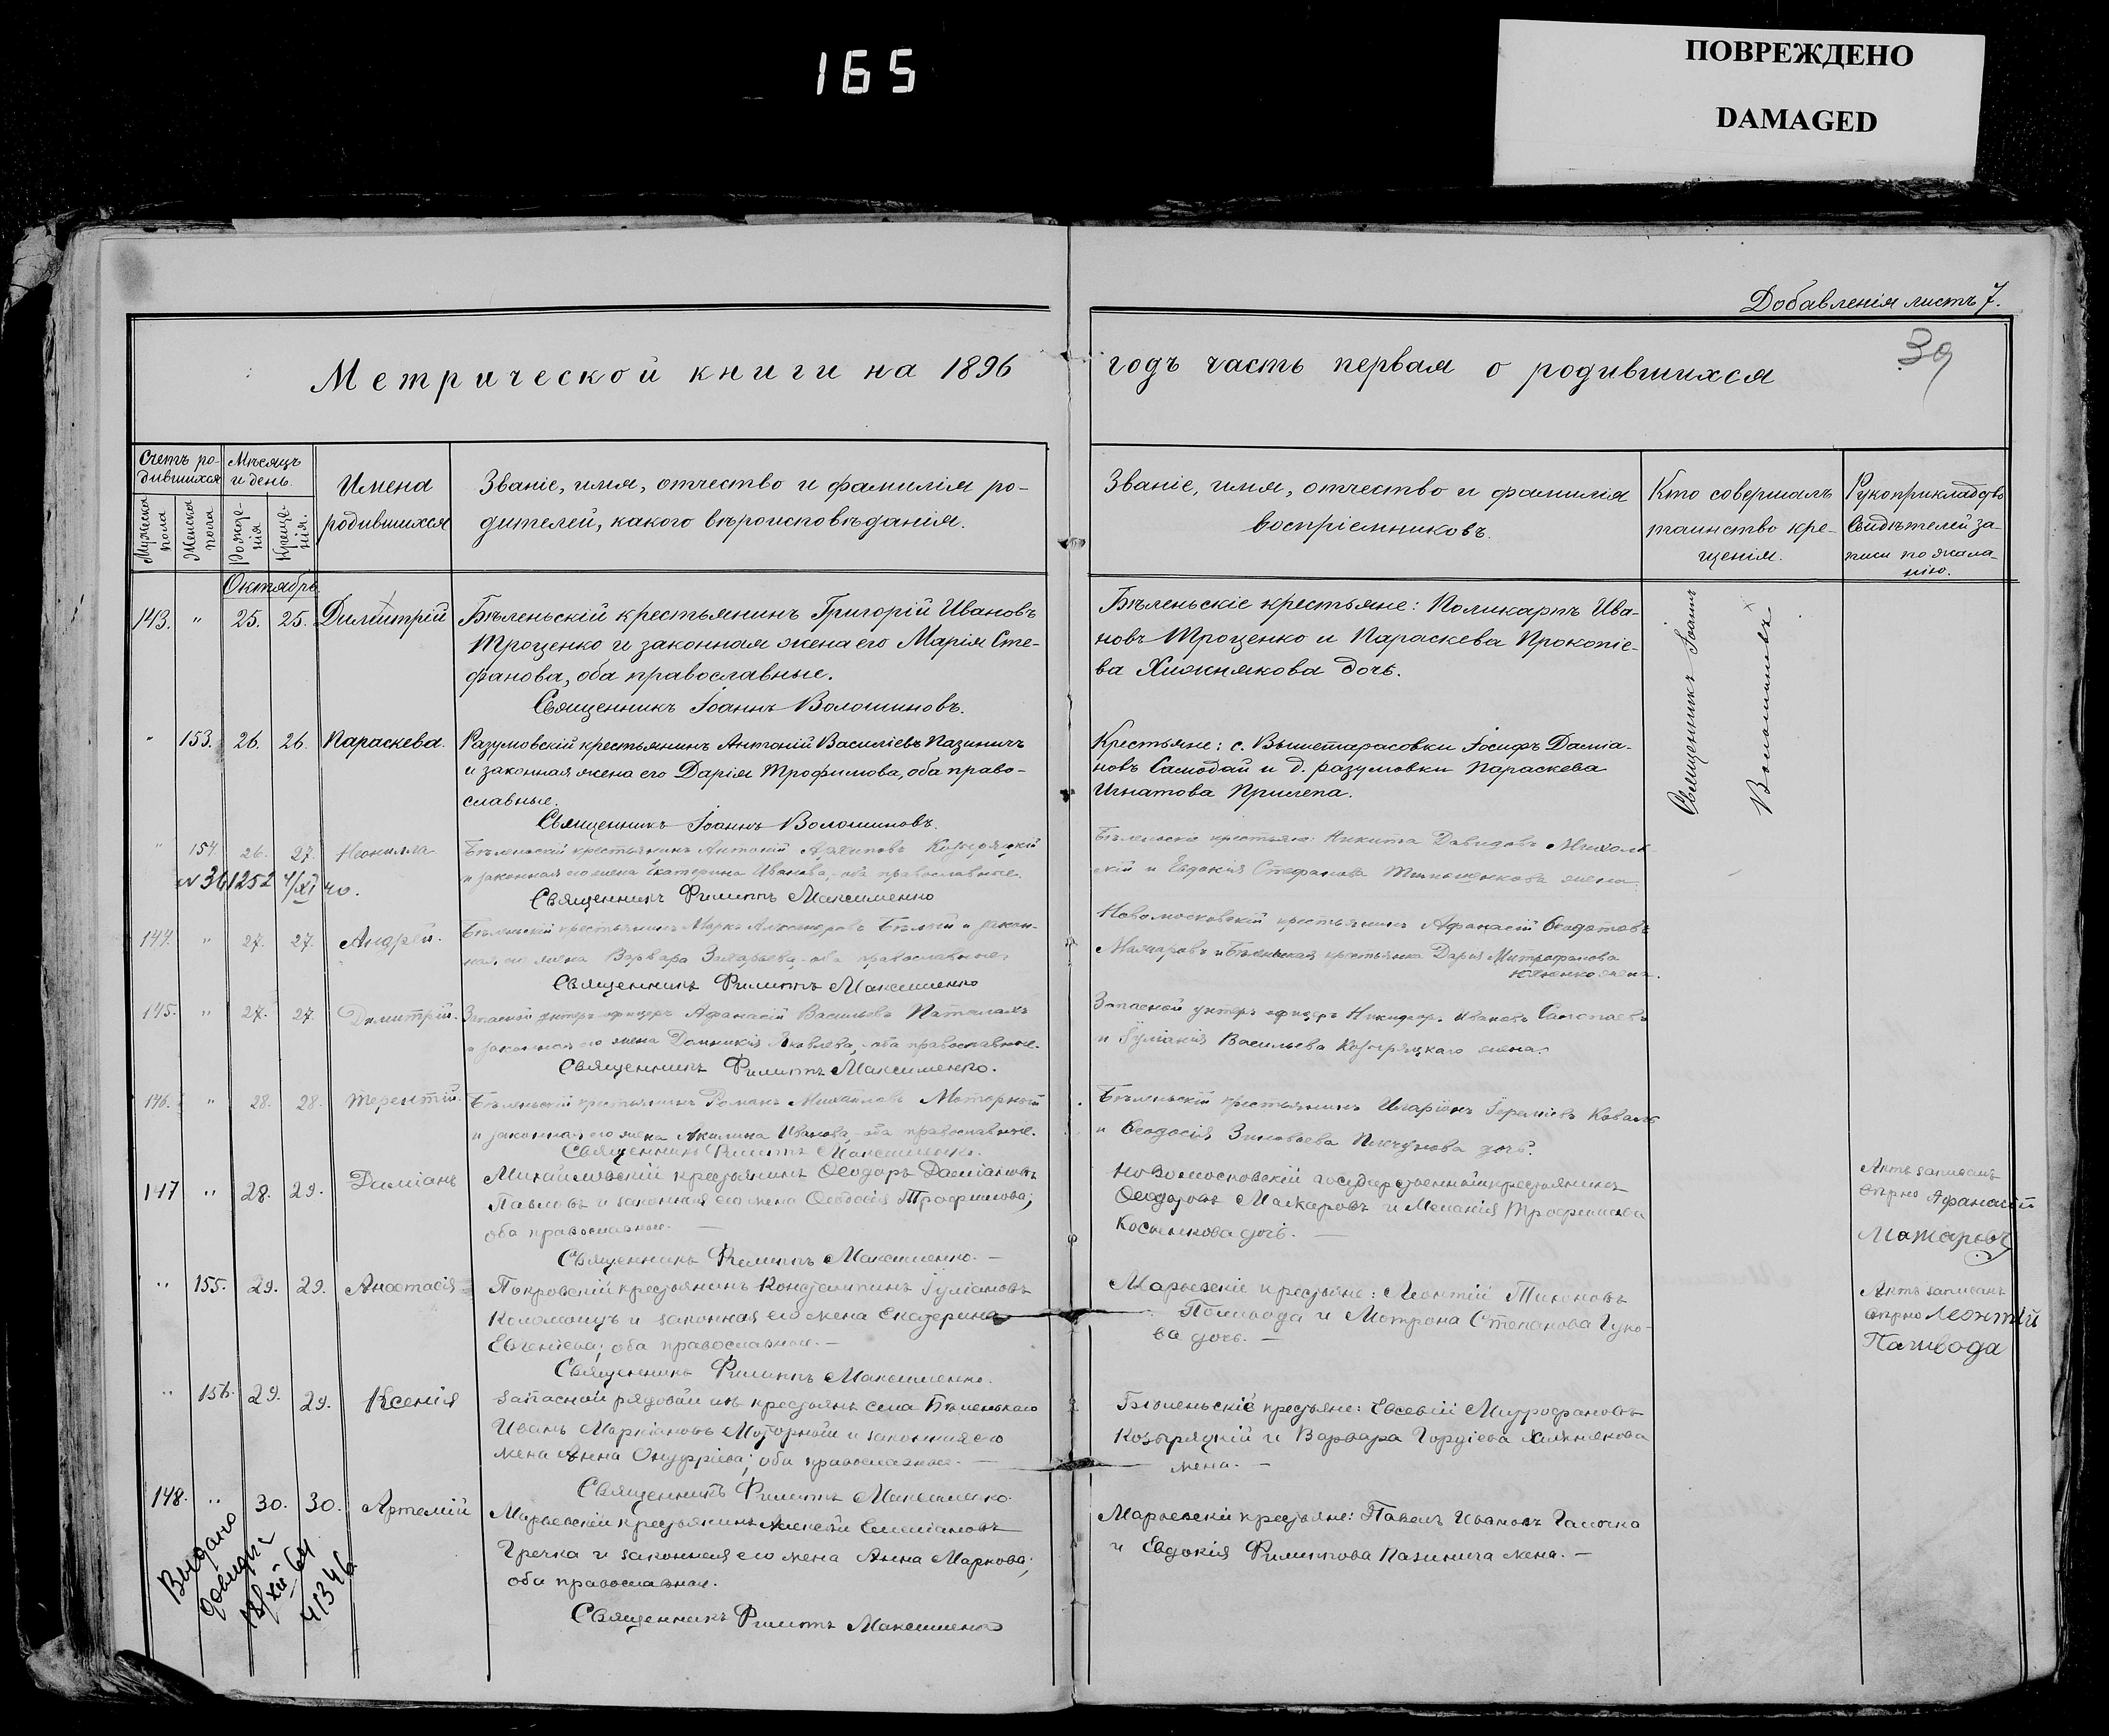 165
ПОВРЕЖДЕНО
DAMAGED
Добавленія листъ 7.
39
Метрической книги на 1896
годъ часть первая о родившихся
Счетъ ро-
дившихся
Мѣсяцъ
и день.
Мужеска
пола
Женска
пола
Рожде-
нія
Креще-
нія.
Имена
родившихся
Званіе, имя, отчество и фамилія ро-
дителей, какого вѣроисповѣданія.
Званіе, имя, отчество и фамилія
воспріемниковъ.
Кто совершалъ
таинство кре-
щенія.
Рукоприкладство
свидѣтелей за-
писи по жела-
нію.
Октябрь
143. " 25. 25. Димитрій
Бѣленьскій крестьянинъ Григорій Ивановъ
Троценко и законная жена его Марія Сте-
фанова, оба православные.
Священникъ Іоаннъ Волошиновъ.
Бѣленьскіе крестьяне: Поликарпъ Ива-
новъ Троценко и Параскева Прокопіе-
ва Хижнякова дочь.
Священникъ Іоаннъ
Волошиновъ
" 153. 26. 26. Параскева.
Разумовскій крестьянинъ Антоній Василіевъ Пазиничъ
и законная жена его Дарія Трофимова, оба право-
славные.
Священникъ Іоаннъ Волошиновъ.
Крестьяне: с. Вышетарасовки Іосифъ Даміа-
новъ Самодай и д. разумовки Параскева
Игнатова Прилепа.
" 154 26. 27. Неонилла
№ 361252 4/XI 40.
Бѣленьскій крестьянинъ Антоній Архиповъ Козыряцкій
и законная его жена Екатерина Иванова, оба православные.
Священникъ Филиппъ Максименко
Бѣленьскіе крестьяне: Никита Давидовъ Михаль-
скій и Евдокія Стефанова Тимошенкова жена.
144. " 27. 27. Андрей.
Бѣленьскій крестьянинъ Марко Александровъ Бѣлый и закон-
ная его жена Варвара Захарьева, оба православные.
Священникъ Филиппъ Максименко
Новомосковскій крестьянинъ Афанасій Ѳеодотовъ
Маляровъ и Бѣленьская крестьянка Дарья Митрофанова
жена.
145. " 27. 27. Димитрій.
Запасной унтеръ-офицеръ Афанасій Васильевъ Паталахъ
и законная его жена Домникія Яковлева, оба православные.
Священникъ Филиппъ Максименко.
Запасной унтеръ-офицеръ Никифоръ Ивановъ
и Іуліанія Васильева Козыряцкаго жена.
146. " 28. 28. Терентій.
Бѣленьскій крестьянинъ Романъ Михайловъ Моторный
и законная его жена Акилина Иванова, оба православные.
Священникъ Филиппъ Максименко.
Бѣленьскій крестьянинъ Иларіонъ Іереміевъ Коваль
и Ѳеодосія Зиновьева дочь.
147 " 28. 29. Даміанъ
Михайловскій крестьянинъ Ѳеодоръ Даміановъ
Павловъ и законная его жена Ѳеодосія Трофимова;
оба православные.
Священникъ Филиппъ Максименко. —
Новомосковскій государственный крестьянинъ
Ѳеодотовъ Макаровъ и Меланія Трофимова
Косынкова дочь. —
Актъ записанъ
вѣрно Афанасій
" 155. 29. 29. Анастасія
Покровскій крестьянинъ Константинъ Іуліановъ
Коломоецъ и законная его жена Екатерина
Евгеніева; оба православные. —
Священникъ Филиппъ Максименко.
Марьевскіе крестьяне: Леонтій Тихоновъ
Паливода и Мотрона Степанова Гуко-
ва дочь. —
Актъ записанъ
вѣрно Леонтій
Паливода
" 156. 29. 29. Ксенія
Запасной рядовой изъ крестьянъ села Бѣленькаго
Иванъ Маркіановъ Моторный и законная его
жена Анна Онуфріева; оба православные. —
Священникъ Филиппъ Максименко.
Бѣленьскіе крестьяне: Евсевій Митрофановъ
Козыряцкій и Варвара Гордіева Хижнякова
жена. —
148. " 30. 30. Артемій
Марьевскій крестьянинъ Алексѣй Емеліановъ
Гречка и законная его жена Анна Маркова;
оба православные.
Священникъ Филиппъ Максименко
Марьевскіе крестьяне: Павелъ Ивановъ Галочка
и Евдокія Филиппова Пазинича жена. —
Выдано
41346